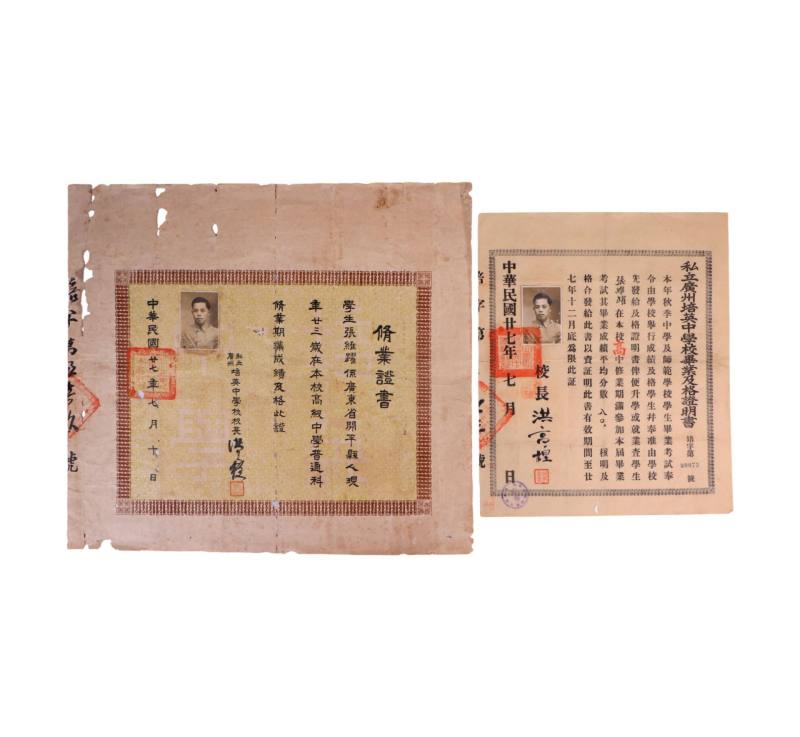 脩業證書
學生張維躍係廣東省開平縣人現
年廿三歲在本校高級中學普通科
脩業期滿成績及格此證
私立
廣州
培英中學校校長
中華民國廿七年七月 日
培字第
號
私立廣州培英中學校畢業及格證明書
培字第
號
本年秋季中學及師範學校學生畢業考試奉
令由學校舉行成績及格學生幷奉准由學校
先發給及格證明書俾便升學或就業查學生
張維躍在本校高中修業期滿參加本屆畢業
考試其畢業成績平均分數八〇. 核明及
格合發給此書以資証明此書有效期間至廿
七年十二月底爲限此証
校長
洪高煌
中華民國廿七年七月 日